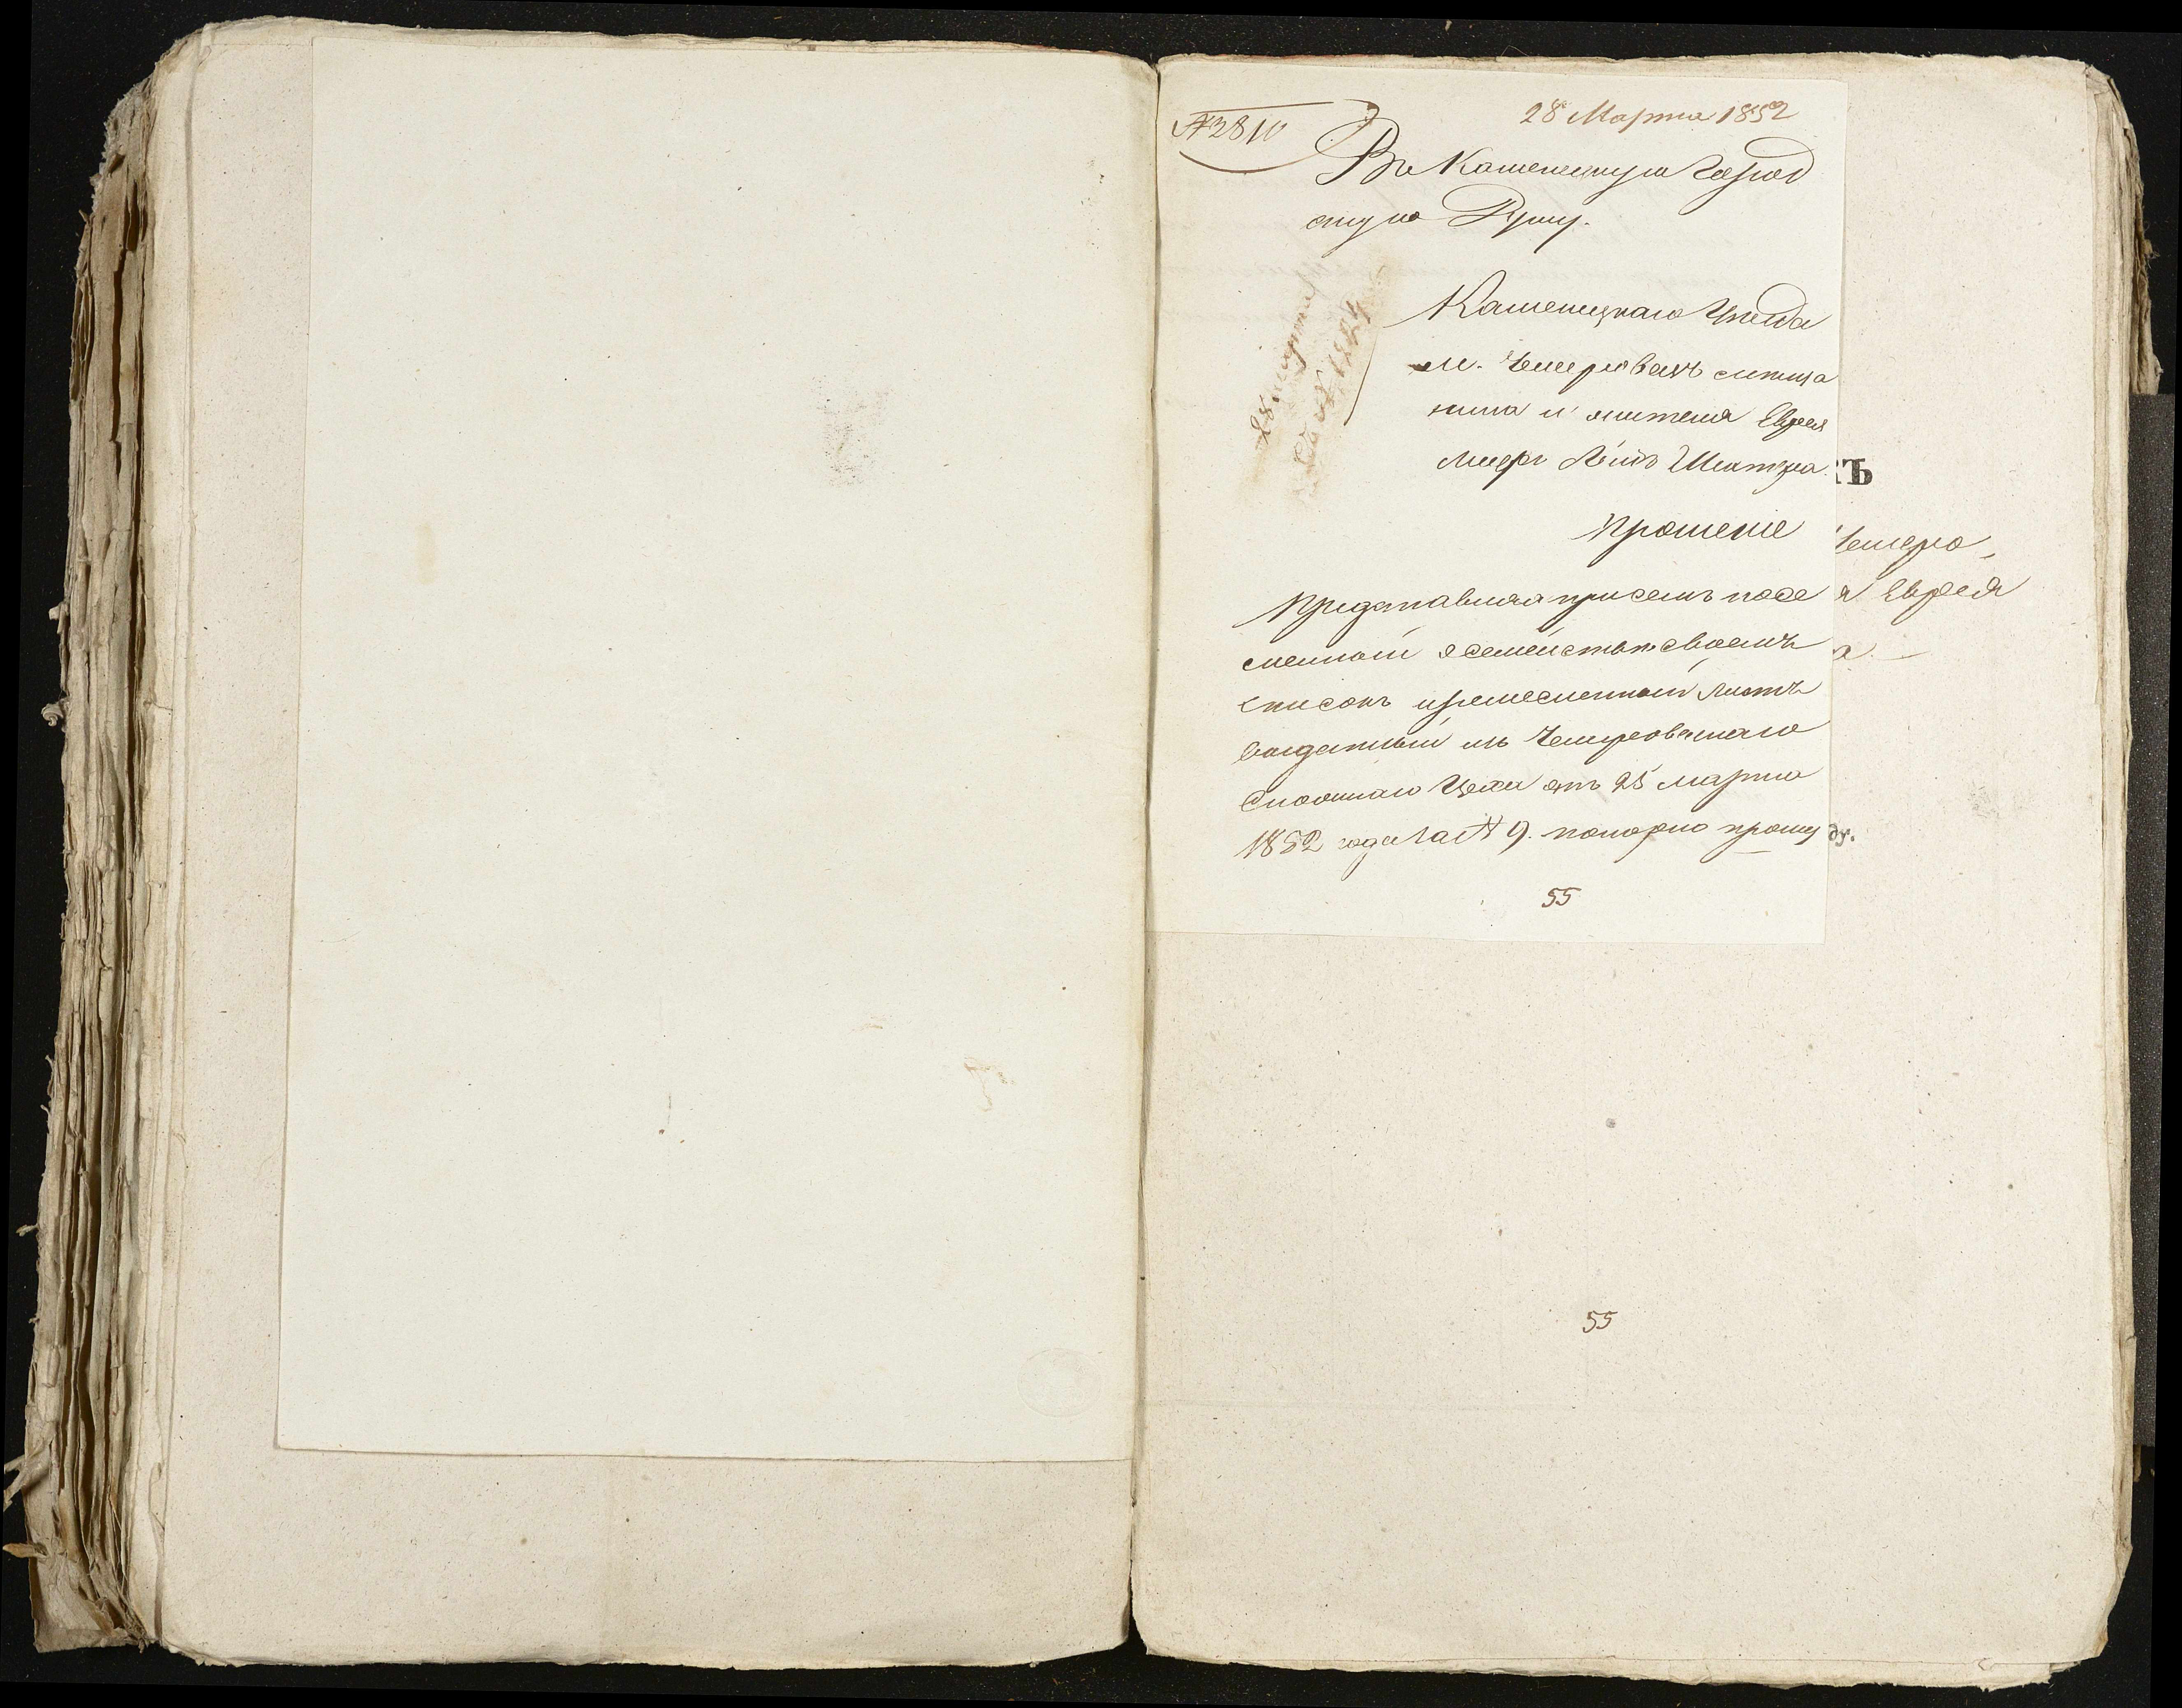 № 2810
28 Марта 1852
Въ Каменецкую Город
скую Думу.
28 марта
№ 1224
Каменецкаго Уѣзда
м. Чемировецъ мѣща
нина и жителя Еврея
Меера Лейб Шектра.
Прошеніе
Представляя при семъ посе
мейный о семействѣ своемъ
списокъ и ремесленный листъ
выданный изъ Чемировецкаго
Сложнаго Цеха отъ 25 марта
1852 года за № 9. покорно прошу
55
ТЪ
Чемеро-
я Еврея
а.
ду.
55